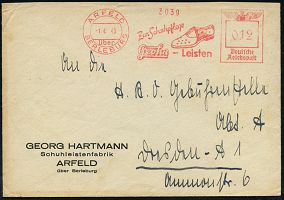 ARFELD
über
BERLEBURG
2039
Zur Schuhpflege
Leisten
012
Deutsche
Reichspost
An die
H. B. O. Gebührenstelle
Abt. A
Dresden-A 1
Ammonstr. 6
GEORG HARTMANN
Schuhleistenfabrik
ARFELD
über Berleburg